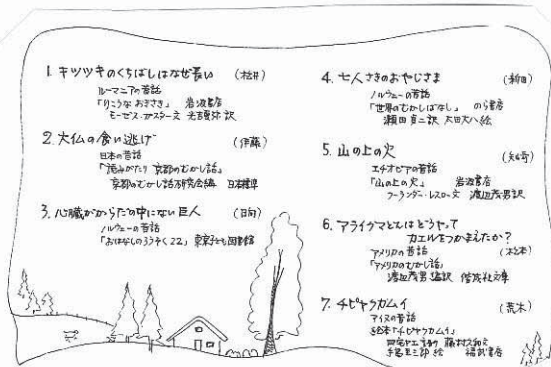 1. キツツキのくちばしはなぜ長い (松井)
ルーマニアの昔話
「りこうなおきさき」 岩波書店
モーゼス・ガスター文 光吉夏弥訳
2. 大仏の食い逃げ (伊藤)
日本の昔話
「読みがたり 京都のむかし話」
京都のむかし話研究会編 日本標準
3. 心臓がからだの中にない巨人 (日向)
ノルウェーの昔話
「おはなしのろうそく22」 東京子ども図書館
4. 七人さきのおやじさま
ノルウェーの昔話
「世界のむかしばなし」 のら書店
瀬田貞二訳 太田大八絵
5. 山の上の火
エチオピアの昔話
「山の上の火」 岩波書店
クーランダー・レスロー文 渡辺茂男訳
6. アライグマどとはどうやって
カエルをつかまえたか?
アメリカの昔話 (松本)
「アメリカのむかし話」
渡辺茂男編訳 偕成社文庫
7. チピヤクカムイ (荒木)
アイヌの昔話
絵本「チピヤクカムイ」
四宅ヤエ 語り 藤村久和 文
手島圭三郎 絵 福武書店